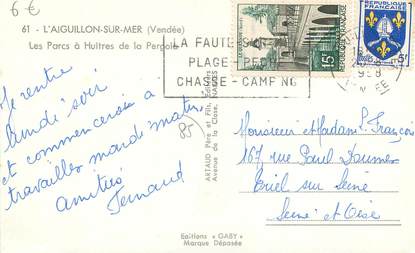 6€
61 - L'AIGUILLON-SUR-MER (Vendée)
Les Parcs à Huîtres de la Pergola
LA FAUTE S
PLAGE - PE
CHASSE - CAMP NG
15F
POSTES
FRANÇAISE
5F
Je rentre
lundi soir
et commencerai à
travailler mardi matin
amitiés
Fernand
85
ARTAUD Père et Fils, Éditeurs
Avenue de la Close, NANTES
Monsieur et Madame François
167 rue Paul Doumer
Triel sur Seine
Seine et Oise
Editions "GABY"
Marque Déposée